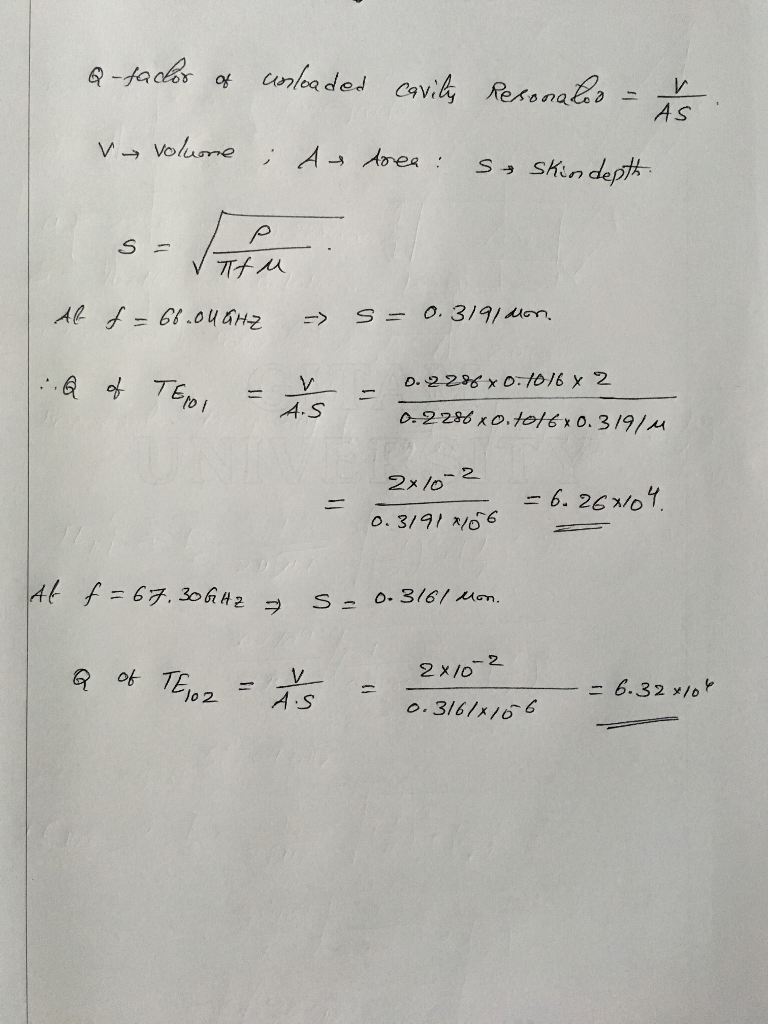 Q-factor of unloaded cavity Resonator = V / AS.
V → Volume ; A → Area : S → Skin depth.
S = √(ρ / πfμ) .
At f = 66.04 GHz => S = 0.3191 μm.
∴ Q of TE101 = V / A.S = 0.2286 x 0.1016 x 2 / 0.2286 x 0.1016 x 0.3191 μ
= 2 x 10^-2 / 0.3191 x 10^-6 = 6.26 x 10^4.
At f = 67.30 GHz => S = 0.3161 μm.
Q of TE102 = V / A.S = 2 x 10^-2 / 0.3161 x 10^-6 = 6.32 x 10^4